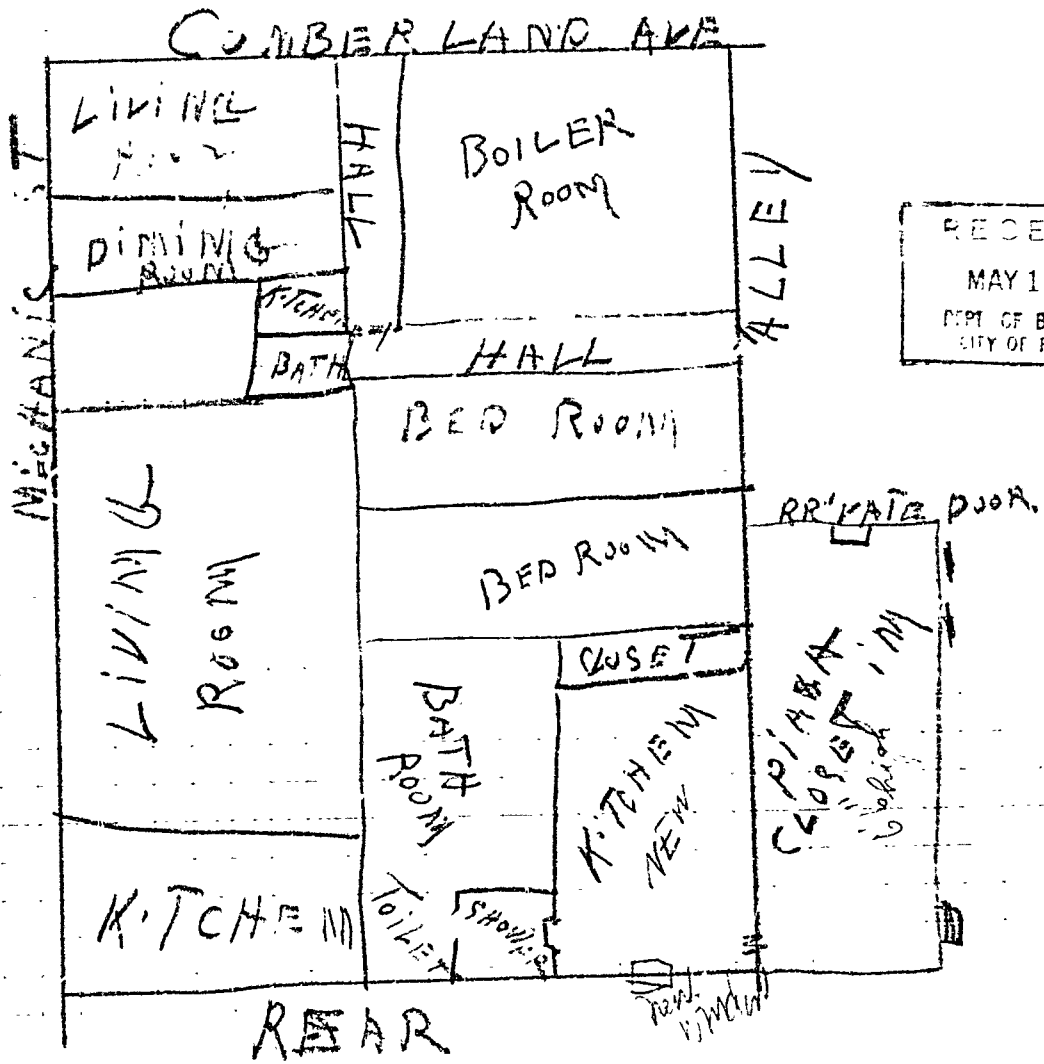 CUMBERLAND AVE
MECHANIC ST
LIVING
HALL
BOILER
ROOM
ALLEY
RECE
MAY 1
DEPT OF B
CITY OF
DINING
ROOM
KITCHEN
BATH
HALL
BED ROOM
BED ROOM
CLOSET
RRIVATE DOOR.
LIVING
ROOM
BATH
ROOM
KITCHEN
NEW
PIAZZA
CLOSET IN
KITCHEN
TOILET
SHOWER
new
window
REAR